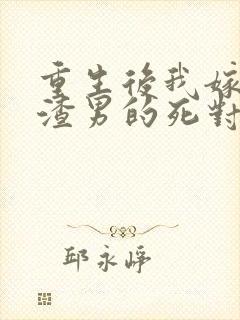 重生後我嫁
渣男的死對
邱永崢